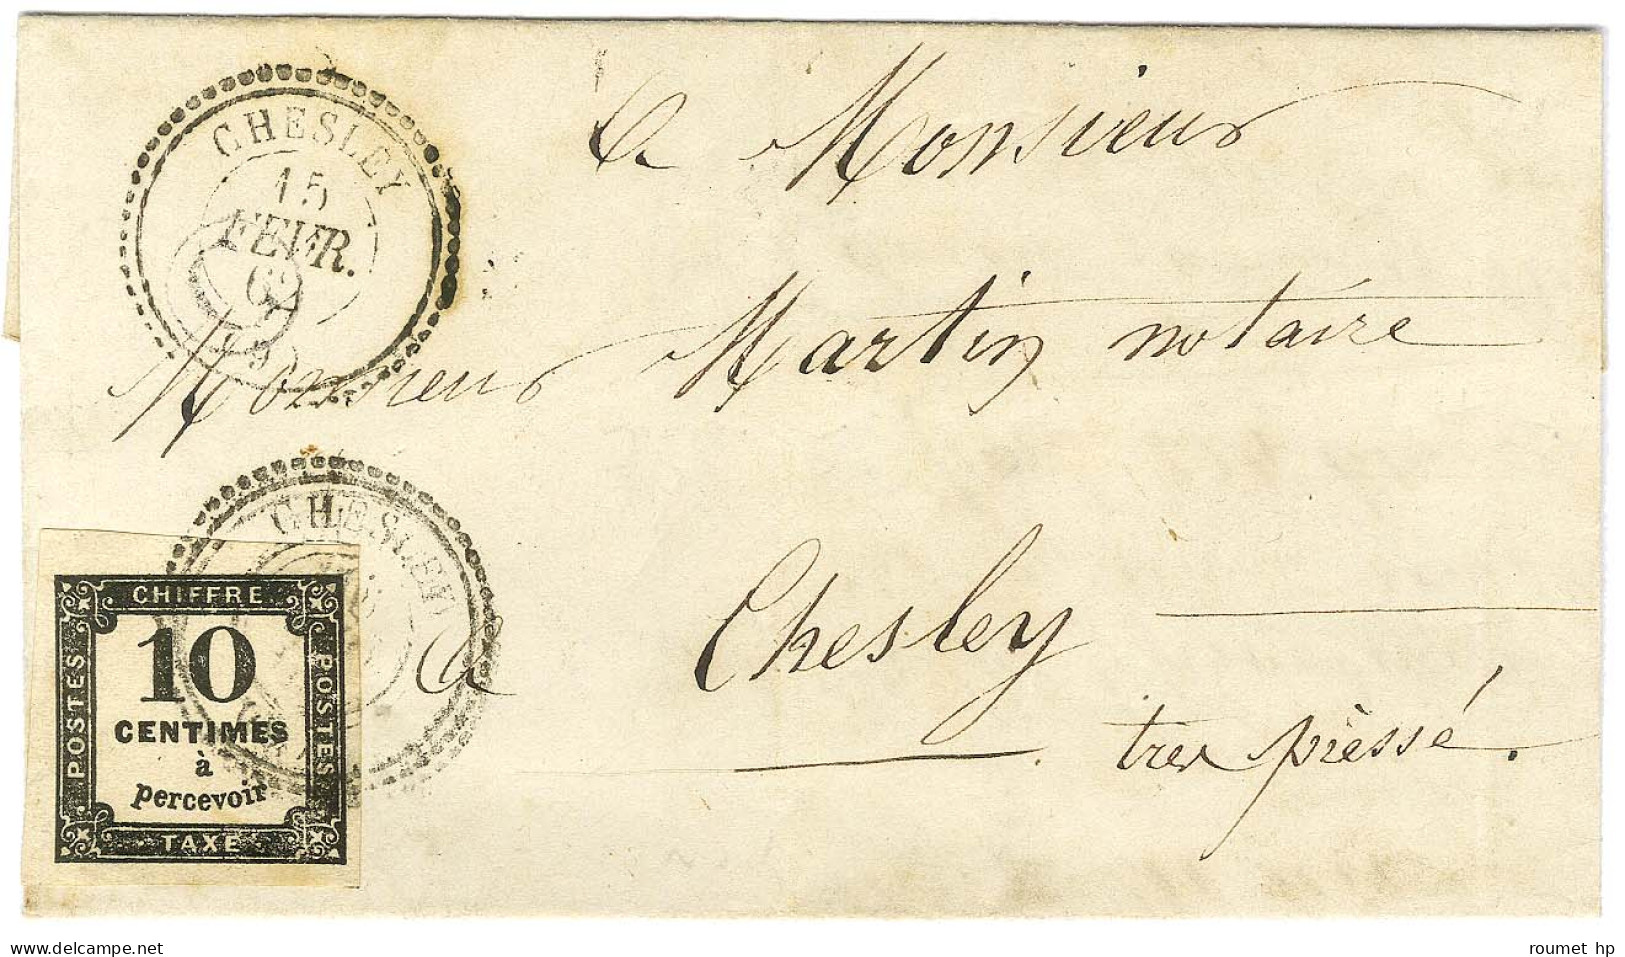 CHESLEY
15
FEVR.
62
(9)
a Monsieur
Monsieur Martin notaire
a Chesley
tres préssé.
CHESLEY
CHIFFRE
POSTES
10
CENTIMES
à
percevoir
POSTES
TAXE
www.delcampe.net
roumet_hp